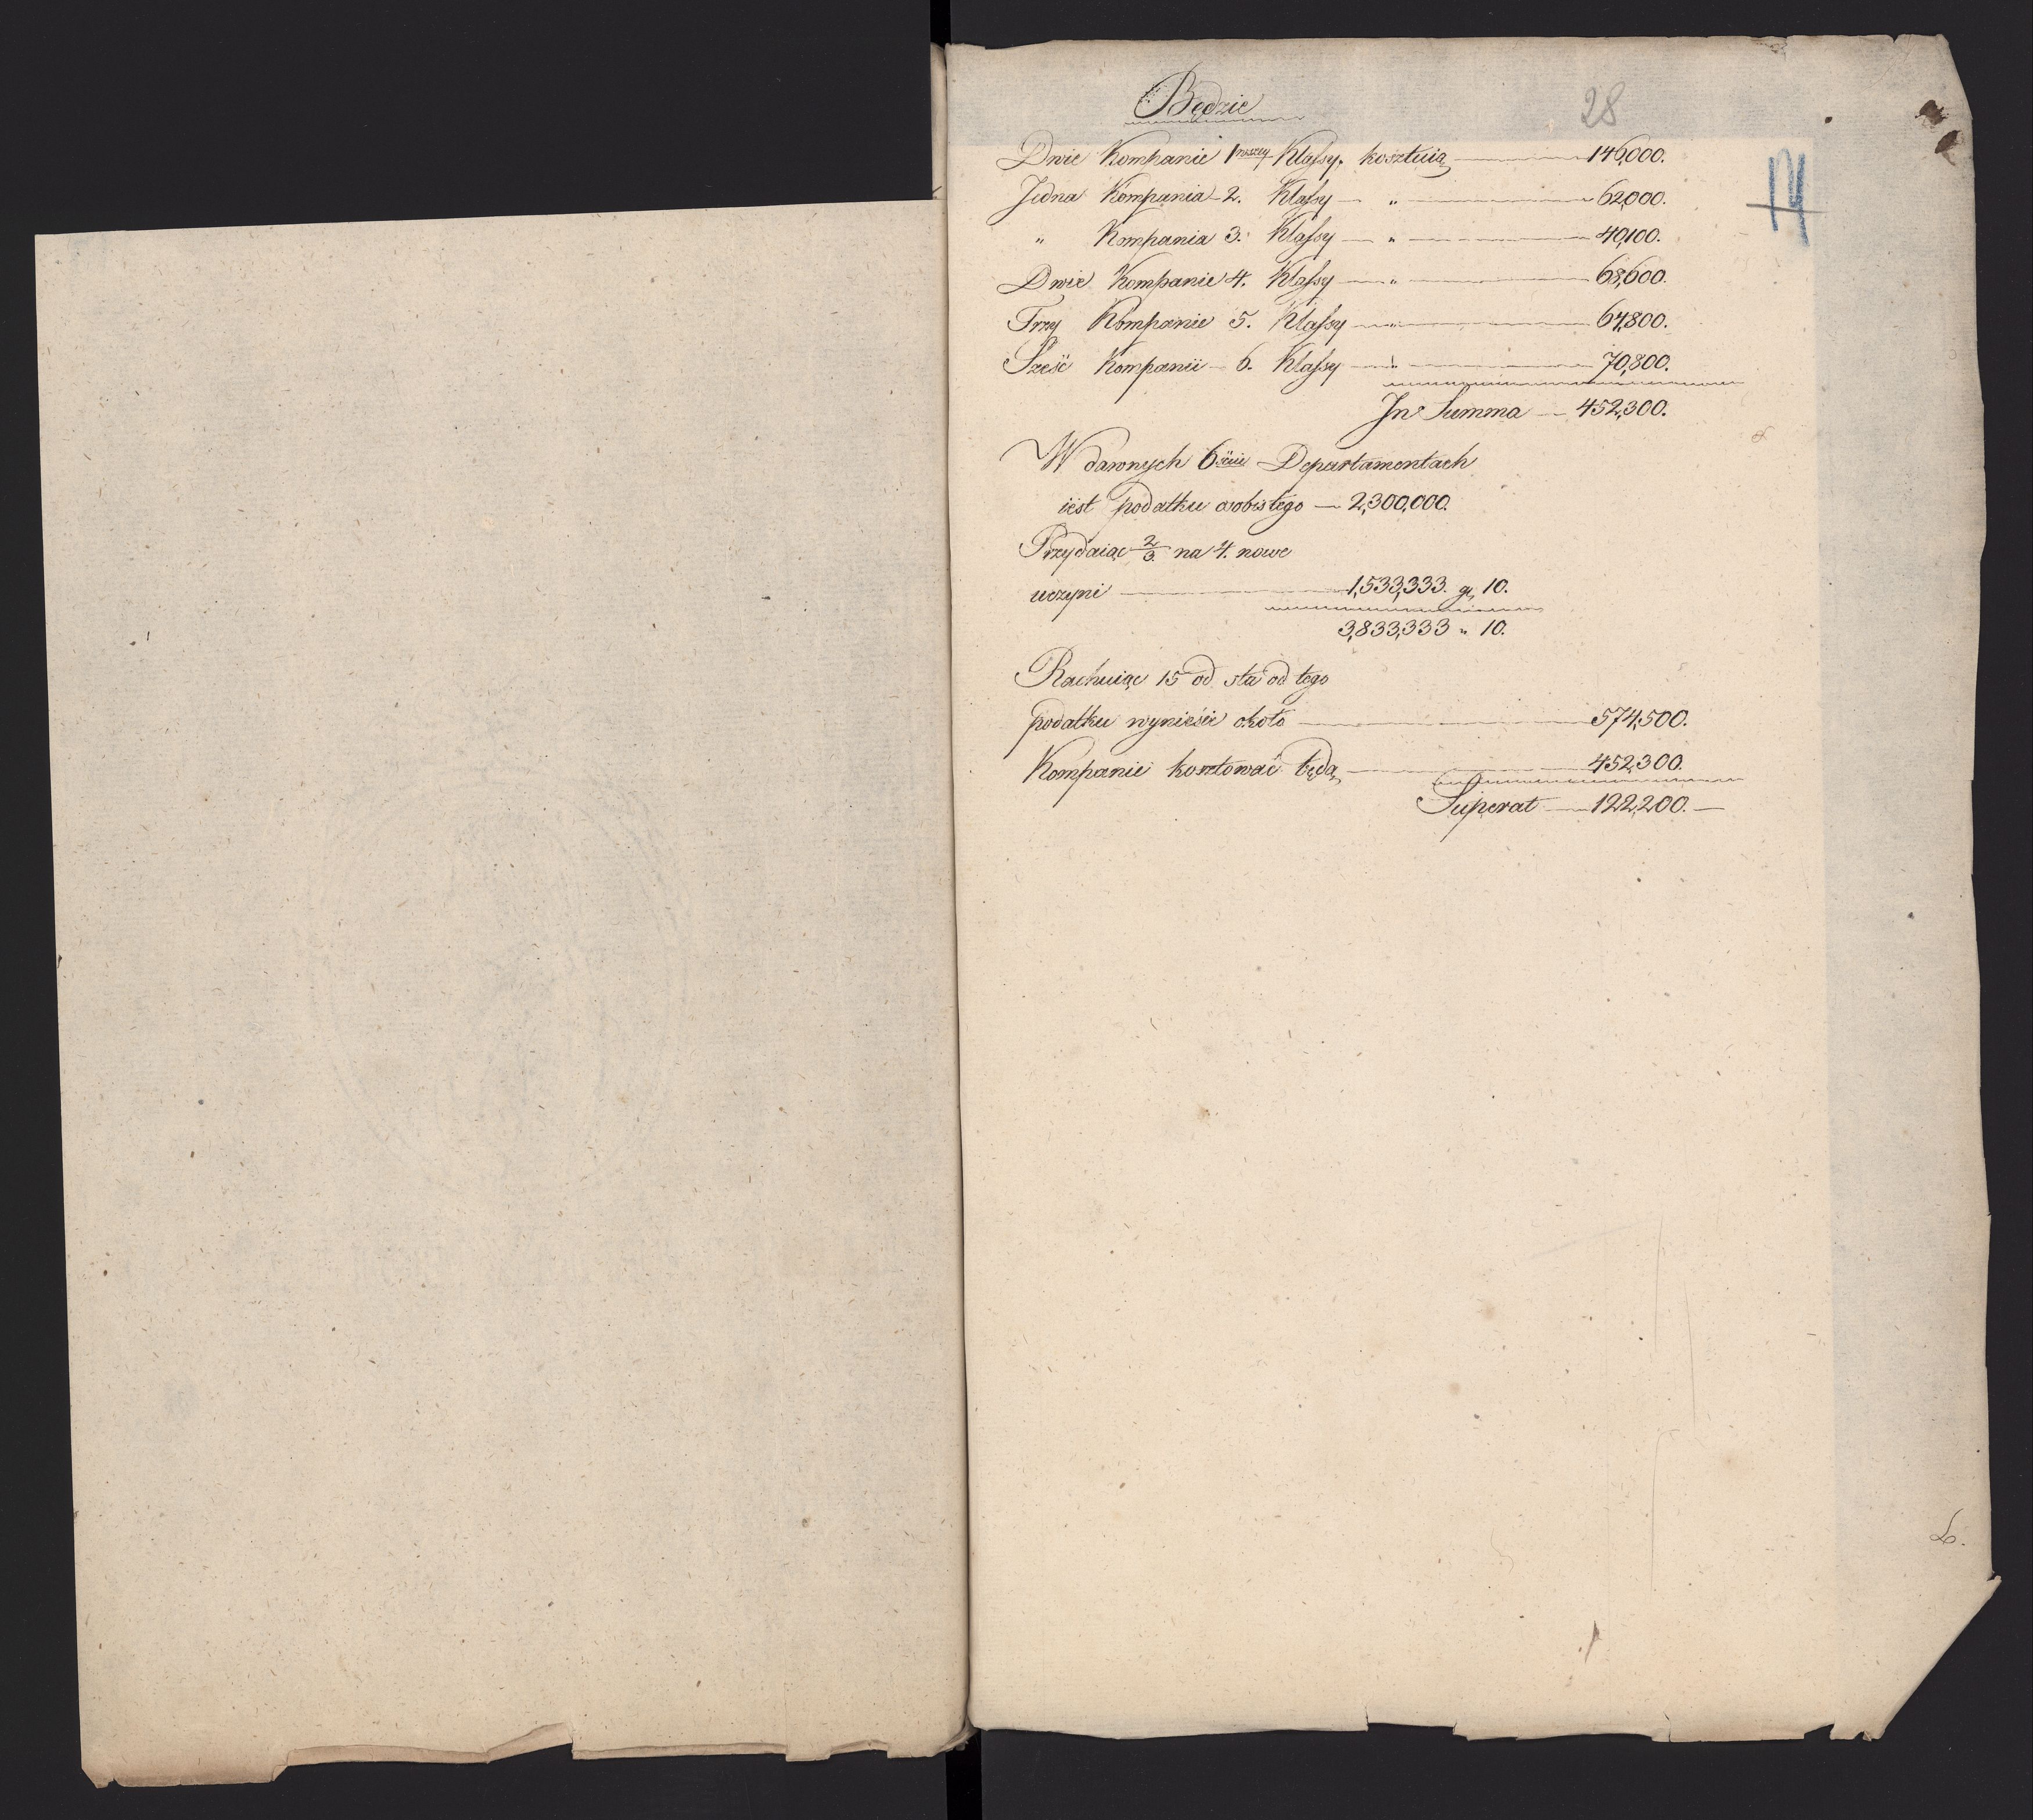 Będzie
28
Dwie Kompanie 1wszey Klassy. kosztuią — 146,000.
14
Jedna Kompania 2. Klassy — " — 62,000.
" Kompania 3. Klassy — " — 40,100.
Dwie Kompanie 4. Klassy — " — 68,600.
Trzy Kompanie 5. Klassy — " — 64,800.
Sześć Kompanii — 6. Klassy — " — 70,800.
In Summa — 452,300.
W dawnych 6ściu Departamentach
iest podatku osobistego — 2,300,000.
Przydaiąc 2/3 na 4. nowe
uczyni — 1,533,333. gr, 10.
3,833,333 " 10.
Rachuiąc 15 od sta od tego
podatku wynieśie około — 574,500.
Kompanie kosztować będą — 452,300.
Superat — 122,200. —